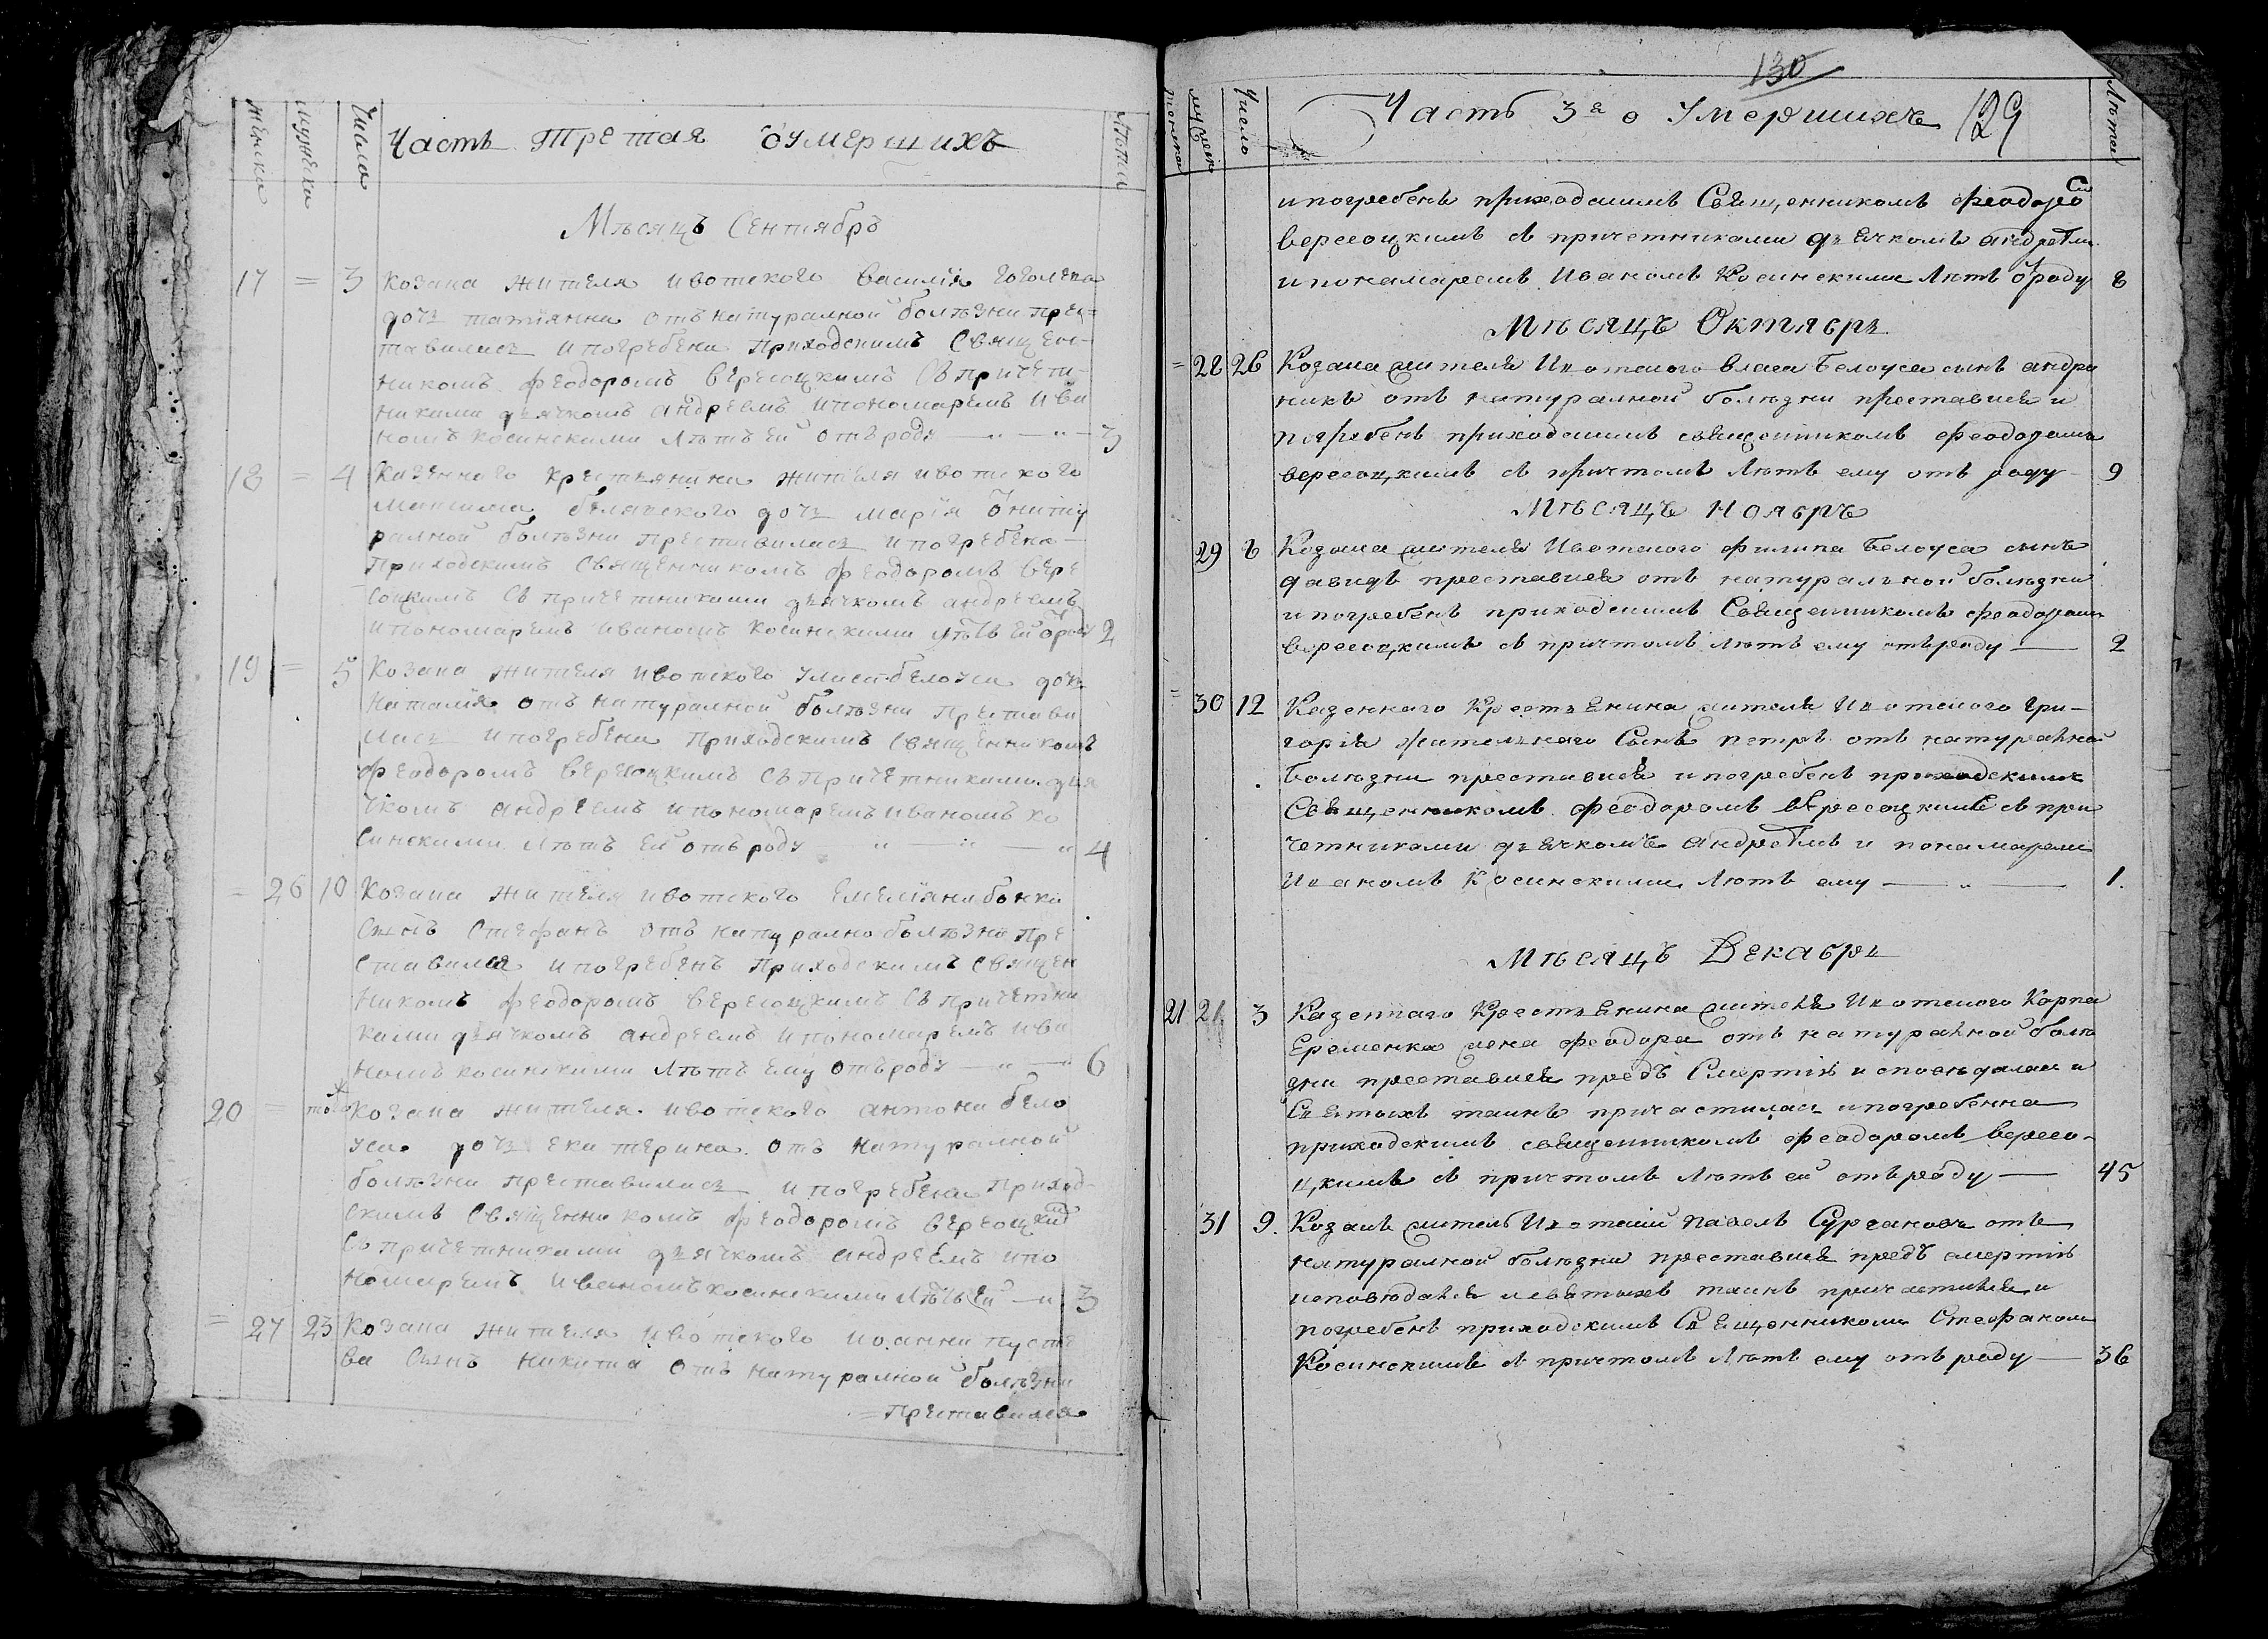 женска мужеска Числа Часть Третая о умершихъ Лѣта
Мѣсяцъ Сентябръ
17 = 3 Козака жителя ивотского василія гоголева
дочь татіянна отъ натуралной болѣзни прес=
тавилась и погребена приходскимъ Священ-
никомъ феодоромъ вересоцкимъ Съ причетн-
никами дьячкомъ андреемъ и пономаремъ ива
номъ косинскими лѣтъ ей отъ роду — 3
18 = 4 Казенного крестьянина жителя ивотского
дочь марія О нату
ралной болѣзни преставилась и погребена
приходскимъ Священникомъ феодоромъ вере
соцкимъ Съ причетниками дьячкомъ андреемъ
и пономаремъ иваномъ косинскими лѣтъ ей 2
19 = 5 Козака жителя ивотского белоуса дочь
Наталія отъ натуралной болѣзни престави
лась и погребена приходскимъ Священникомъ
феодоромъ вересоцкимъ Съ причетниками дья
чкомъ андреемъ и пономаремъ иваномъ ко
синскими лѣтъ ей отъ роду — 4
= 26 10 Козака жителя ивотского емеліяна бонка
Сынъ Стефанъ отъ натурално болѣзни пре
ставился и погребенъ приходскимъ Священ
никомъ феодоромъ вересоцкимъ Съ причетни
ками дьячкомъ андреемъ и пономаремъ ива
номъ косинскими лѣтъ ему отъ роду — 6
20 = того Козака жителя ивотского антона бело
уса дочь екатерина отъ натуралной
болѣзни преставилась и погребена приход-
скимъ Священникомъ феодоромъ вересоцким
Со причетниками дьячкомъ андреемъ и по
номаремъ иваномъ косинскими лѣтъ ей — 3
= 27 23 Козака жителя ивотского иоанна
ва Сынъ никита отъ натуралной болѣзни
= преставился
130
женска мужеска Число Часть 3я о Умершихъ 129 Лѣта
и погребенъ приходскимъ Священникомъ феодоро
вересоцкимъ съ причетниками дьячкомъ андреем
и понамаремъ Иваномъ Косинскими Лѣтъ о роду 8
Мѣсяцъ Октябрь
= 28 26 Козака жителя Ивотского власа Белоуса сынъ андро
никъ отъ натуралной болѣзни преставися и
погребенъ приходскимъ священникомъ феодоромъ
вересоцкимъ съ причтомъ Лѣтъ ему отъ роду — 9
Мѣсяцъ Ноябръ
29 8 Козака жителя Ивотского филипа Белоуса сынъ
давидъ преставися отъ натуральной болѣзни
и погребенъ приходскимъ Священникомъ феодором
вересоцкимъ съ причтомъ лѣтъ ему отъ роду — 2
= 30 12 Казеннаго Крестьянина жителя Ивотского Гри-
горія Жительнаго Сынъ петръ отъ натуралной
болѣзни преставися и погребенъ приходскимъ
Священникомъ феодоромъ вересоцкимъ съ при
четниками дьячкомъ андреемъ и понамарем
Иваномъ Косинскими Лѣтъ ему — 1.
Мѣсяцъ Декабрь
21 21 3 Казеннаго Крестьянина жителя Ивотского Карпа
Еременка жена феодора отъ натуралной болѣ
зни преставися предъ Смертію исповѣдалась и
Святыхъ таинъ причастилась и погребенна
приходскимъ священникомъ феодоромъ вересо-
цкимъ съ причтомъ Лѣтъ ей отъ роду — 45
31 9. Козакъ житель Ивотский павелъ Сургановъ отъ
натуралной болѣзни преставися предъ смертію
исповѣдался и святыхъ таинъ причастился и
погребенъ приходскимъ Священником Стефаном
Косинскимъ съ причтомъ Лѣтъ ему отъ роду — 36